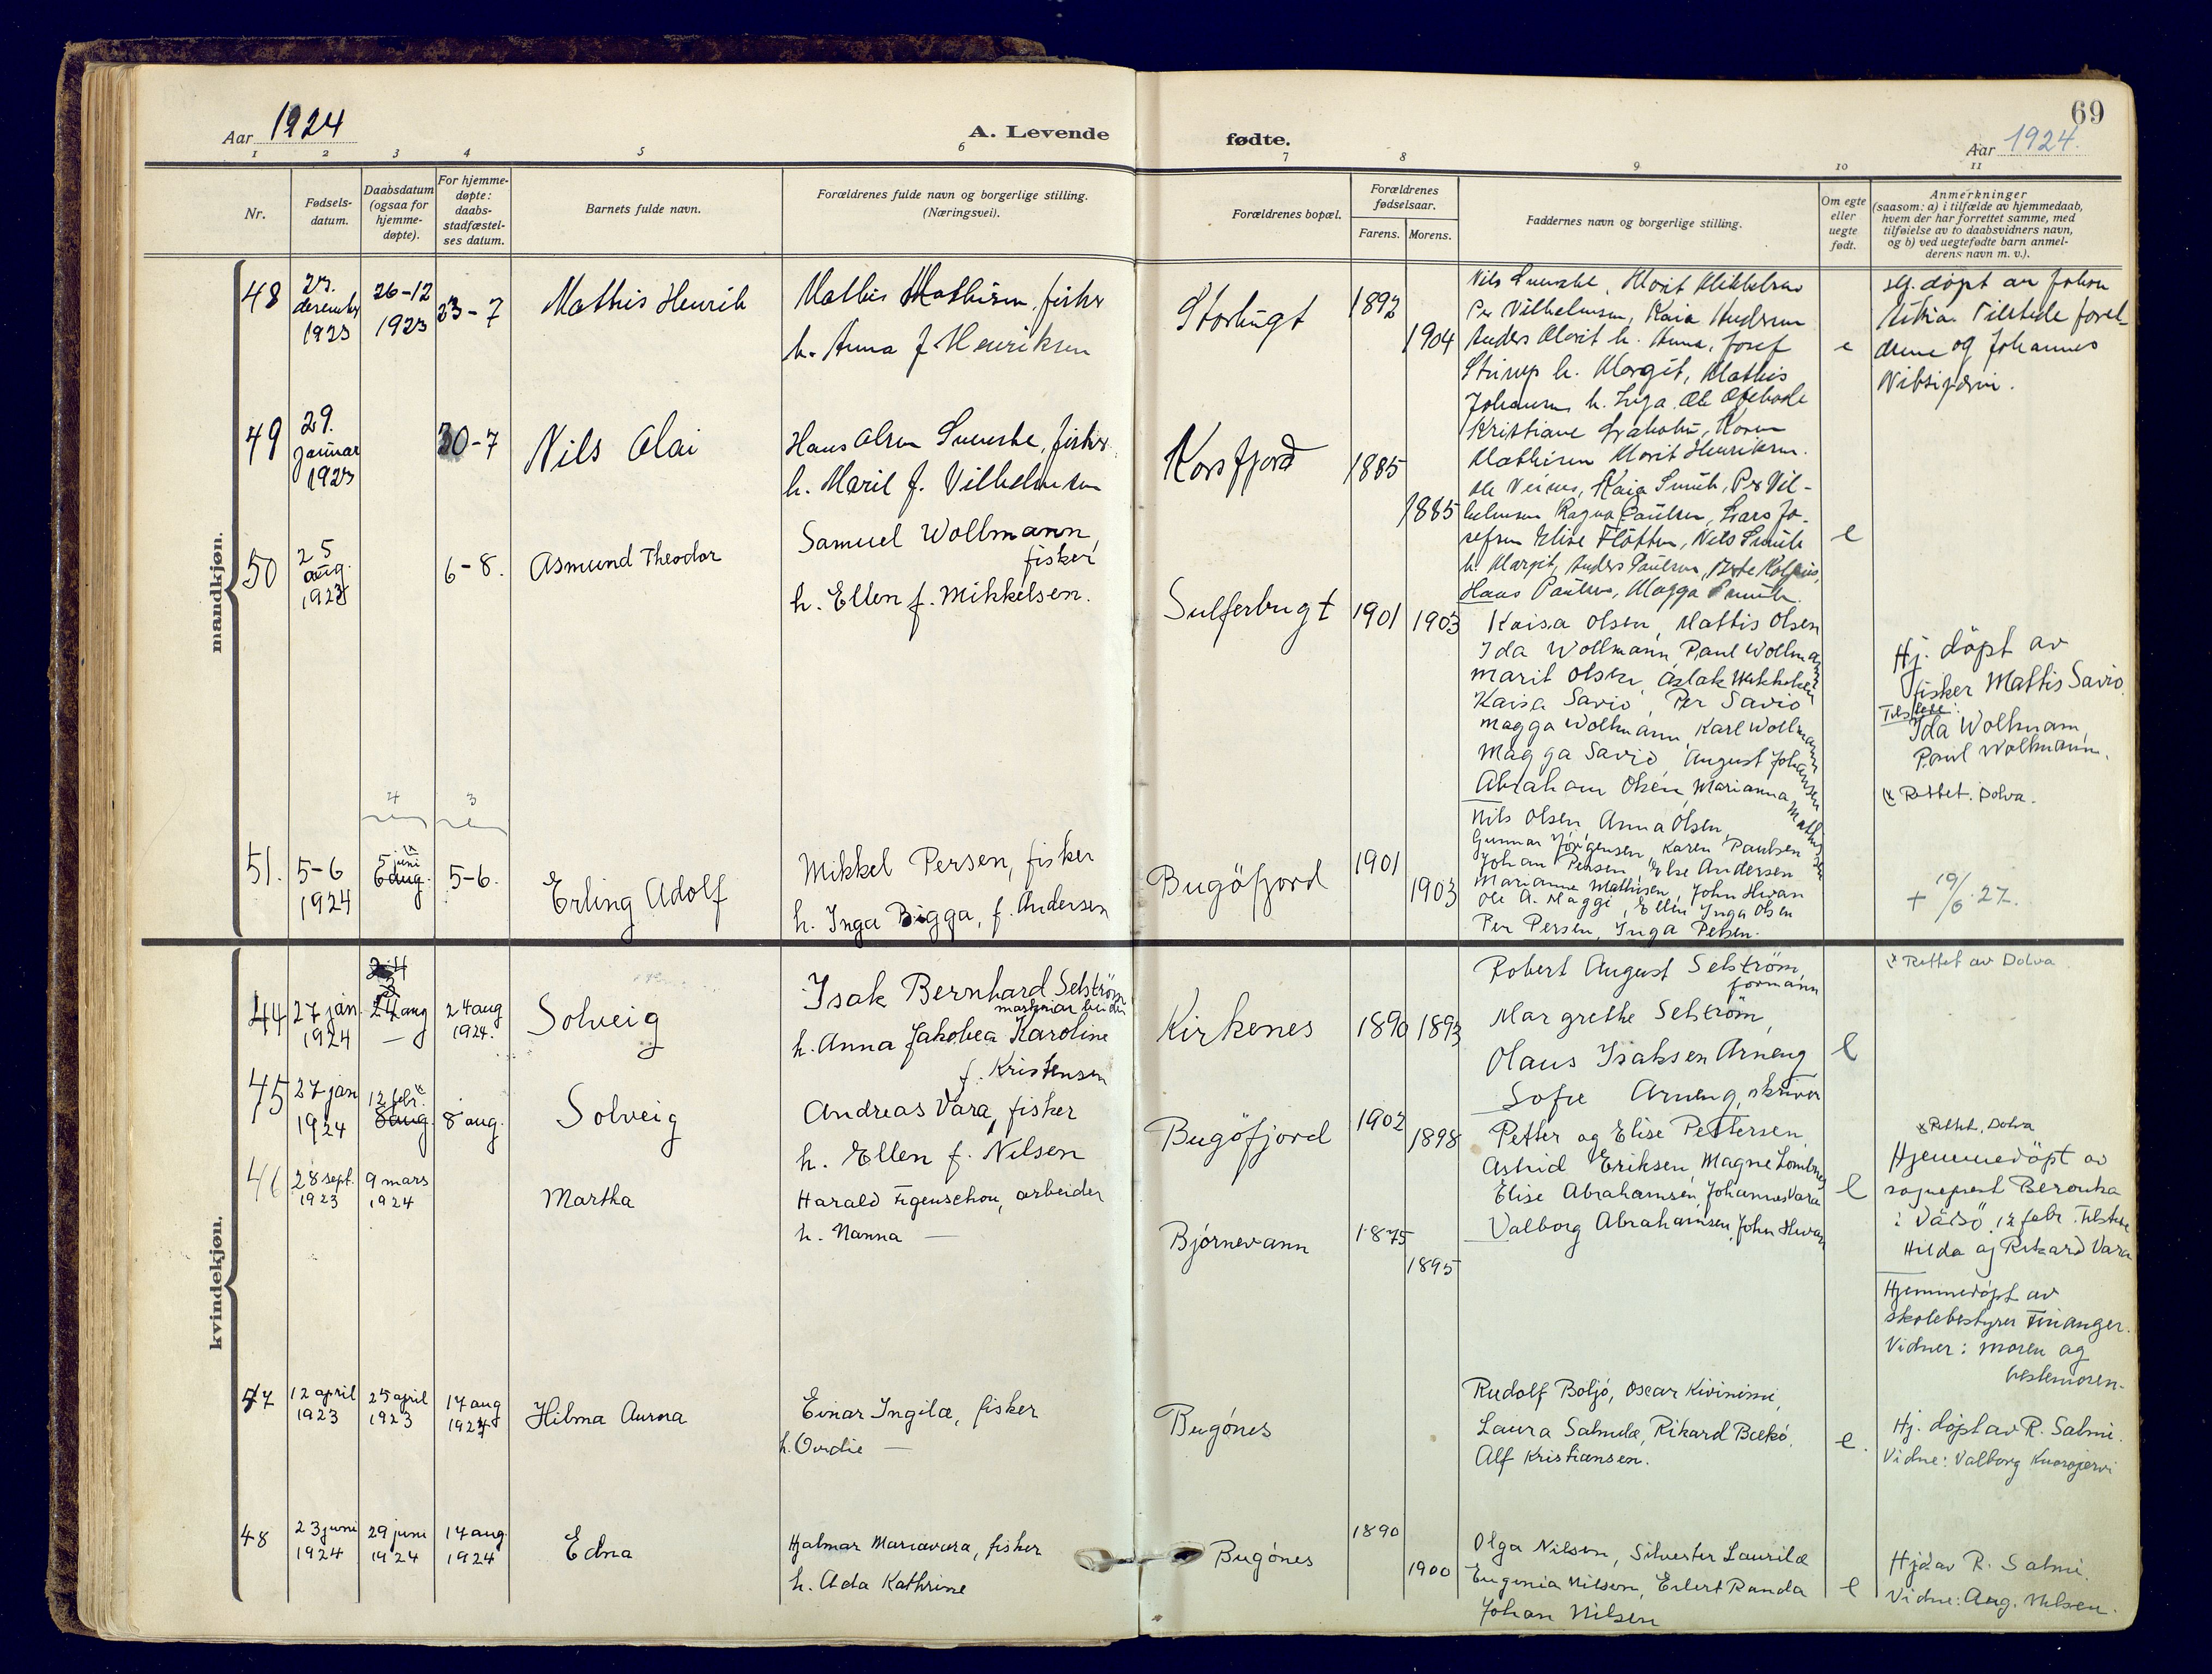 69
Aar 1924
A. Levende
fødte.
Aar 1924.
1 2 3 4 5 6 7 8 9 10 11
Nr.
Fødsels-
datum.
Daabsdatum
(ogsaa for
hjemme-
døpte).
For hjemme-
døpte:
daabs-
stadfæstel-
ses datum.
Barnets fulde navn.
Forældrenes fulde navn og borgerlige stilling.
(Næringsvei).
Forældrenes bopæl.
Forældrenes
fødselsaar.
Farens. Morens.
Faddernes navn og borgerlige stilling.
Om egte
eller
uegte
født.
Anmerkninger
(saasom: a) i tilfælde av hjemmedaab,
hvem der har forrettet samme, med
tilføielse av to daabsvidners navn,
og b) ved uegtefødte barn anmel-
derens navn m. v.).
mandkjøn.
48
december
1923
26-12
1923
23-7
Mathis Henrik
Mathis Mathisen, fisker
h. Anna f Henriksen
Storbugt
1892
1904
Marit Mikkelsen
Per Vilhelmsen, Kaia
Anders Marit h. Anna, Josef
h. Margit, Mathis
h. Inga. Ole
e
døpt av Johan
Tilstede forel-
drene og Johannes
49
29.
januar
1923
30-7
Nils Olai
Hans Olsen fisker
h. Marit f. Vilhelmsen
Korsfjord
1885
1885
Kristiane Karen
Mathisen Marit Henriksen.
Kaia Per Vil-
helmsen Ragna Paulsen, Lars Jo-
sefsen Elise Nils
h. Margit, Anders Paulsen,
Hans Paulsen, Magga
e
50
25
aug.
1923
6-8.
Asmund Theodor
Samuel Wollmann,
fisker
h. Ellen f. Mikkelsen.
Sulferbugt
1901
1903
Kaisa Olsen, Mattis Olsen
Ida Wollmann, Paul Wollmann
Marit Olsen, Aslak
Kaisa Savio, Per Savio
Magga Wollmann, Karl Wollmann
Magga Savio, August Johansen
Abraham Olsen, Marianna Mathisen
Hj. døpt av
fisker Mattis Savio.
Tilstede:
Ida Wollmann,
Paul Wollmann.
x Rettet. Dolva.
4
3
51.
5-6
1924
5 juni x
6 aug.
5-6.
Erling Adolf
Mikkel Persen, fisker
h. Inga Bigga, f. Andersen
Bugöfjord
1901
1903
Nils Olsen, Anna Olsen,
Gunnar Jörgensen, Karen Paulsen
Johan Persen, Else Andersen
Marianne Mathisen, John
Ole A. Maggi, Ellen Inga Olsen
Per Persen, Inga Persen.
+ 19/6. 27.
kvindekjøn.
44
27 jan.
1924
24 aug
24 aug
1924.
Solveig
Isak Bernhard Selström
h. Anna Jakobea Karoline
f. Kristensen
Kirkenes
1890
1893
Robert August Selström,
formann
Margrethe Selström,
Olaus Isaksen Arneng
Sofie Arneng, skriver
e
x Rettet av Dolva
45
27 jan
1924
12 febr. x
8 aug.
8 aug.
Solveig
Andreas Vara, fisker
h. Ellen f. Nilsen
Bugöfjord
1902
1898
Petter og Elise Pettersen,
Astrid Eriksen, Magne
Elise Abrahamsen, Johannes Vara
Valborg Abrahamsen, John
e
x Rettet. Dolva
Hjemmedöpt av
sogneprest
i Vadsö 12 febr. Tilstede
Hilda og Rikard Vara
46
28 sept.
1923
9 mars
1924
Martha
Harald Figenschou, arbeider
h. Nanna —
Björnevann
1875
1895
Hjemmedöpt av
skolebestyrer Finanger.
Vidner: moren og
bestemoren.
47
12 april
1923
25 april
1923
17 aug
1924
Hilma Aurora
Einar Ingilæ, fisker
h. Ovidie —
Bugönes
Rudolf Boljö, Oscar Kivinimi,
Laura Salmila, Rikard
Alf Kristiansen.
e.
Hj. döpt av R. Salmi.
Vidne: Valborg
48
23 juni
1924
29 juni
1924
17 aug.
1924
Edna
Hjalmar Mariavara, fisker
h. Ada Kathrine
Bugönes
1890
1900
Olga Nilsen, Silvester Laurila
Eugenia Nilsen, Edert Randa
Johan Nilsen
e
Hjd. av R. Salmi.
Vidne: Aug. Nilsen.